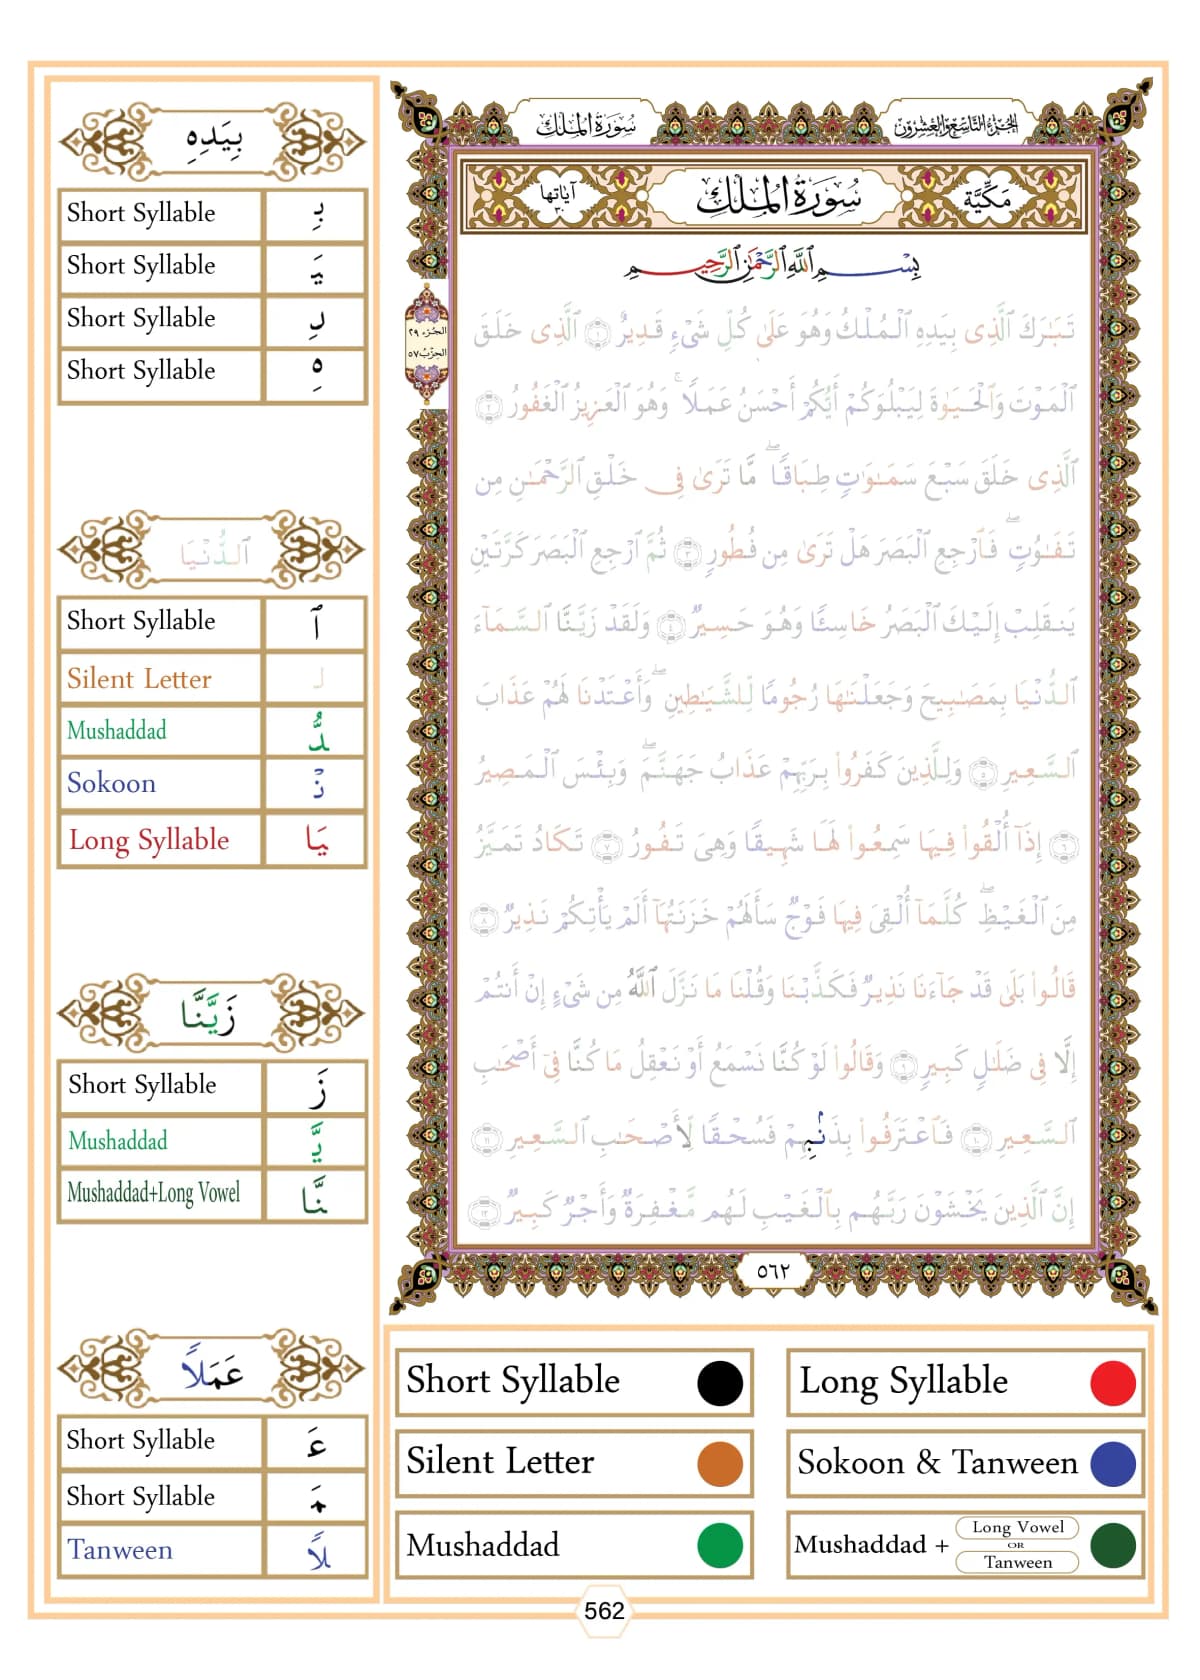 سُورَةُ المُلْكِ
الجُزْءُ التَّاسِعُ وَالعِشْرُونَ
مَكِّيَّة
سُورَةُ المُلْكِ
آيَاتُهَا ٣٠
بِسْمِ ٱللَّهِ ٱلرَّحْمَٰنِ ٱلرَّحِيمِ
الجزء ٢٩
الحزب ٥٧
تَبَٰرَكَ ٱلَّذِى بِيَدِهِ ٱلْمُلْكُ وَهُوَ عَلَىٰ كُلِّ شَىْءٍ قَدِيرٌ ١ ٱلَّذِى خَلَقَ
ٱلْمَوْتَ وَٱلْحَيَوٰةَ لِيَبْلُوَكُمْ أَيُّكُمْ أَحْسَنُ عَمَلًا ۚ وَهُوَ ٱلْعَزِيزُ ٱلْغَفُورُ ٢
ٱلَّذِى خَلَقَ سَبْعَ سَمَٰوَٰتٍ طِبَاقًا ۖ مَّا تَرَىٰ فِى خَلْقِ ٱلرَّحْمَٰنِ مِن
تَفَٰوُتٍ ۖ فَٱرْجِعِ ٱلْبَصَرَ هَلْ تَرَىٰ مِن فُطُورٍ ٣ ثُمَّ ٱرْجِعِ ٱلْبَصَرَ كَرَّتَيْنِ
يَنقَلِبْ إِلَيْكَ ٱلْبَصَرُ خَاسِئًا وَهُوَ حَسِيرٌ ٤ وَلَقَدْ زَيَّنَّا ٱلسَّمَآءَ
ٱلدُّنْيَا بِمَصَٰبِيحَ وَجَعَلْنَٰهَا رُجُومًا لِّلشَّيَٰطِينِ ۖ وَأَعْتَدْنَا لَهُمْ عَذَابَ
ٱلسَّعِيرِ ٥ وَلِلَّذِينَ كَفَرُوا۟ بِرَبِّهِمْ عَذَابُ جَهَنَّمَ ۖ وَبِئْسَ ٱلْمَصِيرُ
٦ إِذَآ أُلْقُوا۟ فِيهَا سَمِعُوا۟ لَهَا شَهِيقًا وَهِىَ تَفُورُ ٧ تَكَادُ تَمَيَّزُ
مِنَ ٱلْغَيْظِ ۖ كُلَّمَآ أُلْقِىَ فِيهَا فَوْجٌ سَأَلَهُمْ خَزَنَتُهَآ أَلَمْ يَأْتِكُمْ نَذِيرٌ ٨
قَالُوا۟ بَلَىٰ قَدْ جَآءَنَا نَذِيرٌ فَكَذَّبْنَا وَقُلْنَا مَا نَزَّلَ ٱللَّهُ مِن شَىْءٍ إِنْ أَنتُمْ
إِلَّا فِى ضَلَٰلٍ كَبِيرٍ ٩ وَقَالُوا۟ لَوْ كُنَّا نَسْمَعُ أَوْ نَعْقِلُ مَا كُنَّا فِىٓ أَصْحَٰبِ
ٱلسَّعِيرِ ١٠ فَٱعْتَرَفُوا۟ بِذَنۢبِهِمْ فَسُحْقًا لِّأَصْحَٰبِ ٱلسَّعِيرِ ١١
إِنَّ ٱلَّذِينَ يَخْشَوْنَ رَبَّهُم بِٱلْغَيْبِ لَهُم مَّغْفِرَةٌ وَأَجْرٌ كَبِيرٌ ١٢
٥٦٢
بِيَدِهِ
Short Syllable بِـ
Short Syllable ـيَـ
Short Syllable دِ
Short Syllable هِ
ٱلدُّنْيَا
Short Syllable ٱ
Silent Letter لـ
Mushaddad دُّ
Sokoon نْـ
Long Syllable يَا
زَيَّنَّا
Short Syllable زَ
Mushaddad يَّـ
Mushaddad+Long Vowel نَّا
عَمَلًا
Short Syllable عَـ
Short Syllable ـمَـ
Tanween لًا
Short Syllable
Long Syllable
Silent Letter
Sokoon & Tanween
Mushaddad
Mushaddad + Long Vowel OR Tanween
562